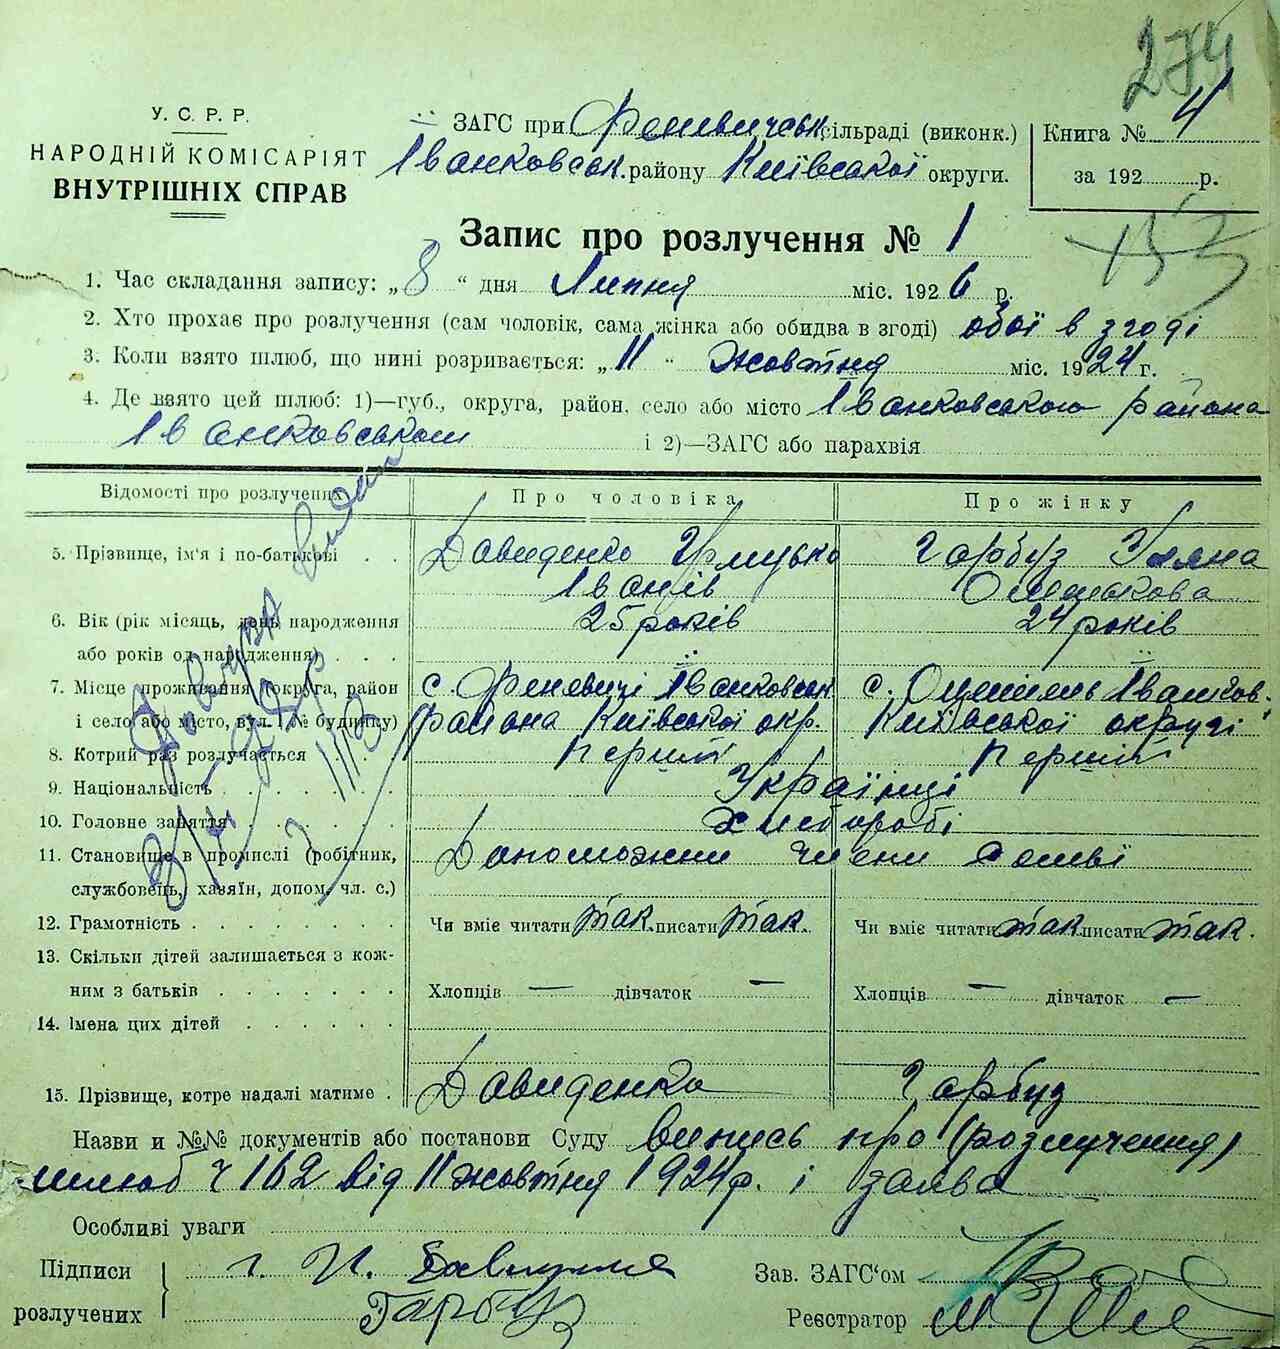 274
У. С. Р. Р.
НАРОДНІЙ КОМІСАРІЯТ
ВНУТРІШНІХ СПРАВ
ЗАГС при Феневичськ. сільраді (виконк.)
Іванковськ. району Київської округи.
Книга № 4
за 192 р.
Запис про розлучення № 1
1. Час складання запису: „8“ дня Липня міс. 1926 р.
2. Хто прохає про розлучення (сам чоловік, сама жінка або обидва в згоді) обої в згоді
3. Коли взято шлюб, що нині розривається: „11“ Жовтня міс. 1924 г.
4. Де взято цей шлюб: 1)—губ., округа, район, село або місто Іванковського района
Іванковськом і 2)—ЗАГС або парахвія
Відомості про розлучених
Про чоловіка
Про жінку
5. Прізвище, ім'я і по-батькові . .
Давиденко
Іванів
Гарбуз Уляна
Омелькова
6. Вік (рік місяць, день народження
або років од народження) . . .
25 років
24 років
7. Місце проживання (округа, район
і село або місто, вул. і № будинку)
с. Феневичі Іванковськ
района Київської окр.
с. Оцитель Іванков.
Київської округі
8. Котрий раз розлучається
перший
перший
9. Національність . . . . . .
Українці
10. Головне заняття . . . . . .
Хлібороби
11. Становище в промислі (робітник,
службовець, хазяїн, допом. чл. с.)
Допоможни члени сомьї
12. Грамотність . . . . . . .
Чи вміє читати так. писати так.
Чи вміє читати так писати так.
13. Скільки дітей залишається з кож-
ним з батьків . . . . . . .
Хлопців — дівчаток —
Хлопців — дівчаток —
14. Імена цих дітей . . . . . .
15. Прізвище, котре надалі матиме .
Давиденко
Гарбуз
Назви и №№ документів або постанови Суду випись про (розлучення)
шлюб ч 162 від 11 жовтня 1924 р. і заява
Особливі уваги
Підписи
розлучених
Гарбуз
Зав. ЗАГС'ом
Реєстратор